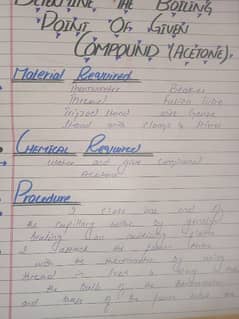 Determine the Boiling
Point Of Given
Compound (Acetone).
Material Required
Thermometer Beaker
Thread Fusion tube
Tripod Stand wire Gauze
Stand with clamp &
Chemical Required
Water and give Compound
Acetone
Procedure
1 close one end of
the capillary tube by gently
heating on
2 attach the fusion tube
with the thermometer by using
thread in such a way that
the bulb of the thermometer
and base of the fusion tube are